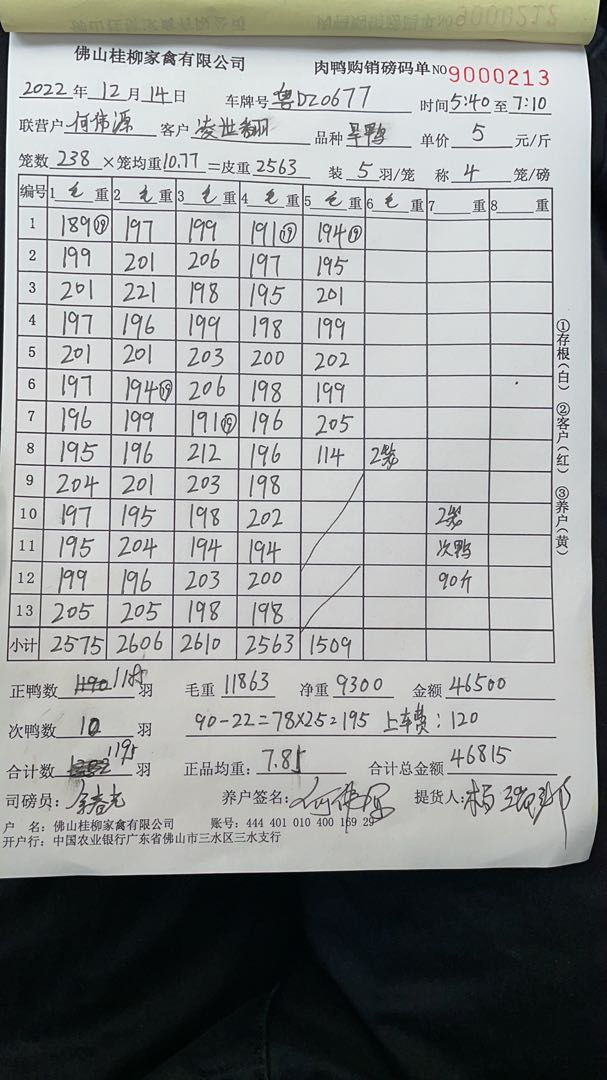 佛山桂柳家禽有限公司 肉鸭购销磅码单 NO 9000213
2022 年 12 月 14 日 车牌号 粤DZ0677 时间 5:40 至 7:10
联营户 何伟源 客户 凌世翻 品种 旱鸭 单价 5 元/斤
笼数 238 ×笼均重 10.77 =皮重 2563 装 5 羽/笼 称 4 笼/磅
编号 1 毛 重 2 毛 重 3 毛 重 4 毛 重 5 毛 重 6 毛 重 7 重 8 重
1 189⑲ 197 199 191⑲ 194⑲
2 199 201 206 197 195
3 201 221 198 195 201
4 197 196 199 198 199
5 201 201 203 200 202
6 197 194⑲ 206 198 199
7 196 199 191⑲ 196 205
8 195 196 212 196 114 2笼
9 204 201 203 198
10 197 195 198 202 2笼
11 195 204 194 194 次鸭
12 199 196 203 200 90斤
13 205 205 198 198
小计 2575 2606 2610 2563 1509
正鸭数 1190 1185 羽 毛重 11863 净重 9300 金额 46500
次鸭数 10 羽 90-22=78×25=195 上车费:120
合计数 1195 羽 正品均重: 7.85 合计总金额 46815
司磅员: 养户签名: 提货人:
户 名: 佛山桂柳家禽有限公司 账号: 444 401 010 400 169 29
开户行: 中国农业银行广东省佛山市三水区三水支行
①存根(白) ②客户(红) ③养户(黄)